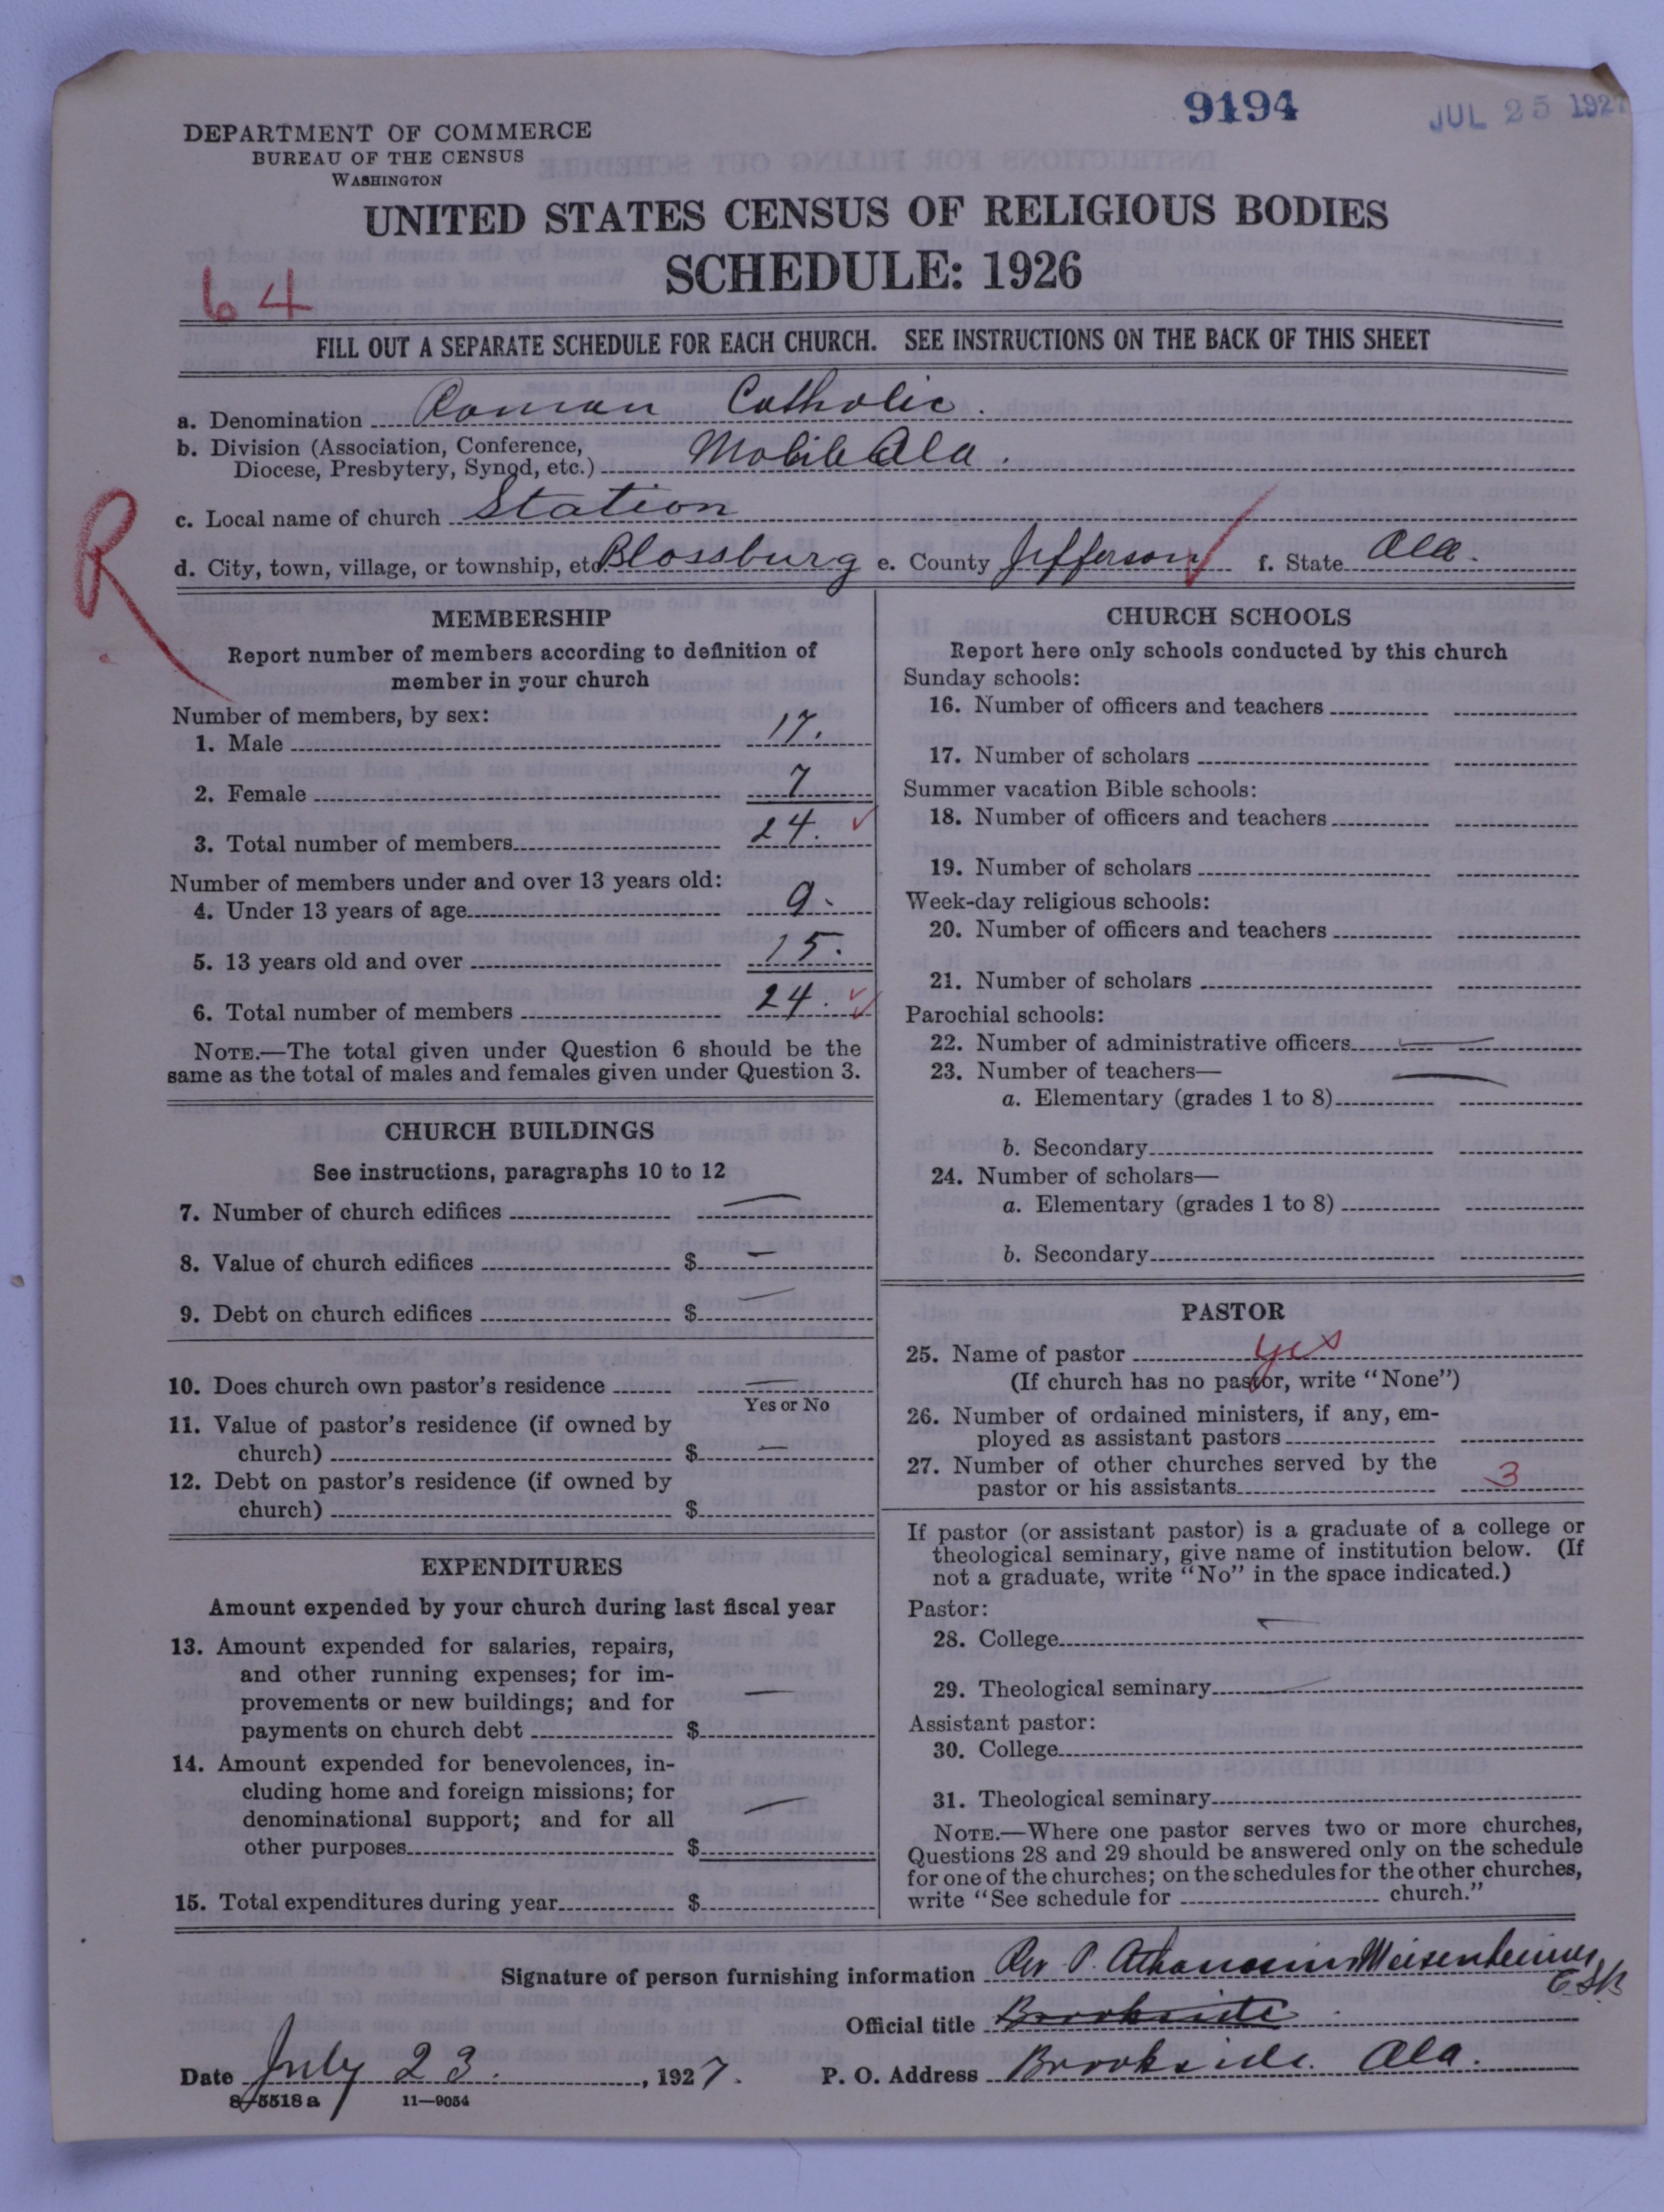 9194
JUL 25 1927
DEPARTMENT OF COMMERCE
BUREAU OF THE CENSUS
WASHINGTON
UNITED STATES CENSUS OF RELIGIOUS BODIES
SCHEDULE: 1926
64
FILL OUT A SEPARATE SCHEDULE FOR EACH CHURCH. SEE INSTRUCTIONS ON THE BACK OF THIS SHEET
a. Denomination Roman Catholic.
b. Division (Association, Conference,
Diocese, Presbytery, Synod, etc.) Mobile Ala.
R
c. Local name of church Station
d. City, town, village, or township, etc. Blossburg e. County Jefferson f. State Ala.
MEMBERSHIP
Report number of members according to definition of
member in your church
Number of members, by sex:
1. Male 17.
2. Female 7
3. Total number of members 24.
Number of members under and over 13 years old:
4. Under 13 years of age 9.
5. 13 years old and over 15.
6. Total number of members 24.
NOTE.—The total given under Question 6 should be the
same as the total of males and females given under Question 3.
CHURCH BUILDINGS
See instructions, paragraphs 10 to 12
7. Number of church edifices —
8. Value of church edifices $ —
9. Debt on church edifices $ —
10. Does church own pastor's residence —
Yes or No
11. Value of pastor's residence (if owned by
church) $ —
12. Debt on pastor's residence (if owned by
church) $
EXPENDITURES
Amount expended by your church during last fiscal year
13. Amount expended for salaries, repairs,
and other running expenses; for im-
provements or new buildings; and for
payments on church debt $ —
14. Amount expended for benevolences, in-
cluding home and foreign missions; for
denominational support; and for all
other purposes $ —
15. Total expenditures during year $
CHURCH SCHOOLS
Report here only schools conducted by this church
Sunday schools:
16. Number of officers and teachers
17. Number of scholars
Summer vacation Bible schools:
18. Number of officers and teachers
19. Number of scholars
Week-day religious schools:
20. Number of officers and teachers
21. Number of scholars
Parochial schools:
22. Number of administrative officers —
23. Number of teachers— —
a. Elementary (grades 1 to 8)
b. Secondary
24. Number of scholars—
a. Elementary (grades 1 to 8)
b. Secondary
PASTOR
25. Name of pastor yes
(If church has no pastor, write "None")
26. Number of ordained ministers, if any, em-
ployed as assistant pastors
27. Number of other churches served by the
pastor or his assistants 3
If pastor (or assistant pastor) is a graduate of a college or
theological seminary, give name of institution below. (If
not a graduate, write "No" in the space indicated.)
Pastor:
28. College —
29. Theological seminary —
Assistant pastor:
30. College
31. Theological seminary
NOTE.—Where one pastor serves two or more churches,
Questions 28 and 29 should be answered only on the schedule
for one of the churches; on the schedules for the other churches,
write "See schedule for church."
Signature of person furnishing information Rev. P. Athanasius
Official title Brookside
Date July 23. , 1927. P. O. Address Brookside. Ala.
8-5518 a 11—9054